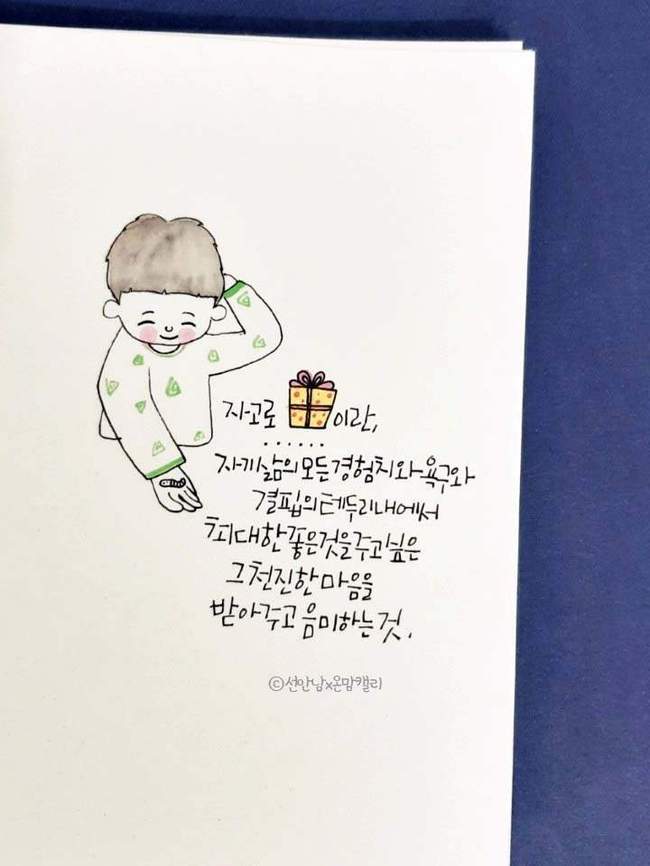 자고로 이란,
......
자기삶의모든경험치와욕구와
결핍의테두리내에서
최대한좋은것을주고싶은
그천진한마음을
받아주고음미하는것.
©선안남x온맘캘리